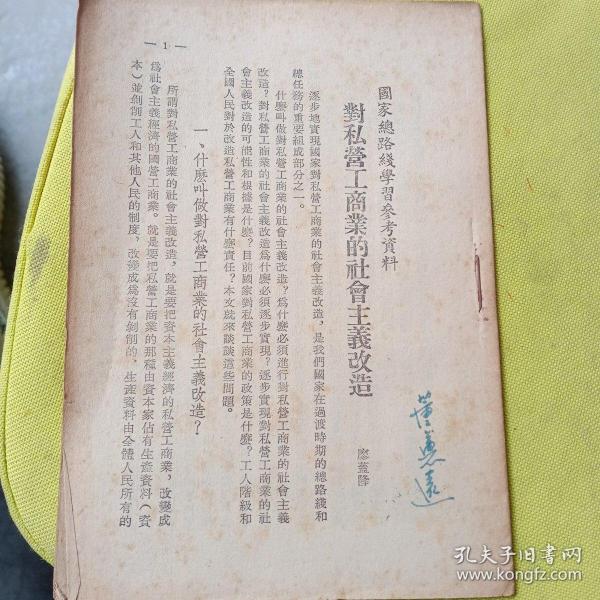 國家總路綫學習參考資料
對私營工商業的社會主義改造
廖蓋隆
逐步地實現國家對私營工商業的社會主義改造，是我們國家在過渡時期的總路綫和
總任務的重要組成部分之一。
什麽叫做對私營工商業的社會主義改造？爲什麽必須進行對私營工商業的社會主義
改造？對私營工商業的社會主義改造爲什麽必須逐步實現？逐步實現對私營工商業的社
會主義改造的可能性和根據是什麽？目前國家對私營工商業的政策是什麽？工人階級和
全國人民對於改造私營工商業有什麽責任？本文就來談談這些問題。
一、什麽叫做對私營工商業的社會主義改造？
所謂對私營工商業的社會主義改造，就是要把資本主義經濟的私營工商業，改變成
爲社會主義經濟的國營工商業。就是要把私營工商業的那種由資本家佔有生產資料（資
本）並剝削工人和其他人民的制度，改變成爲沒有剝削的，生產資料由全體人民所有的
— 1 —
孔夫子旧書网
www.kongfz.com